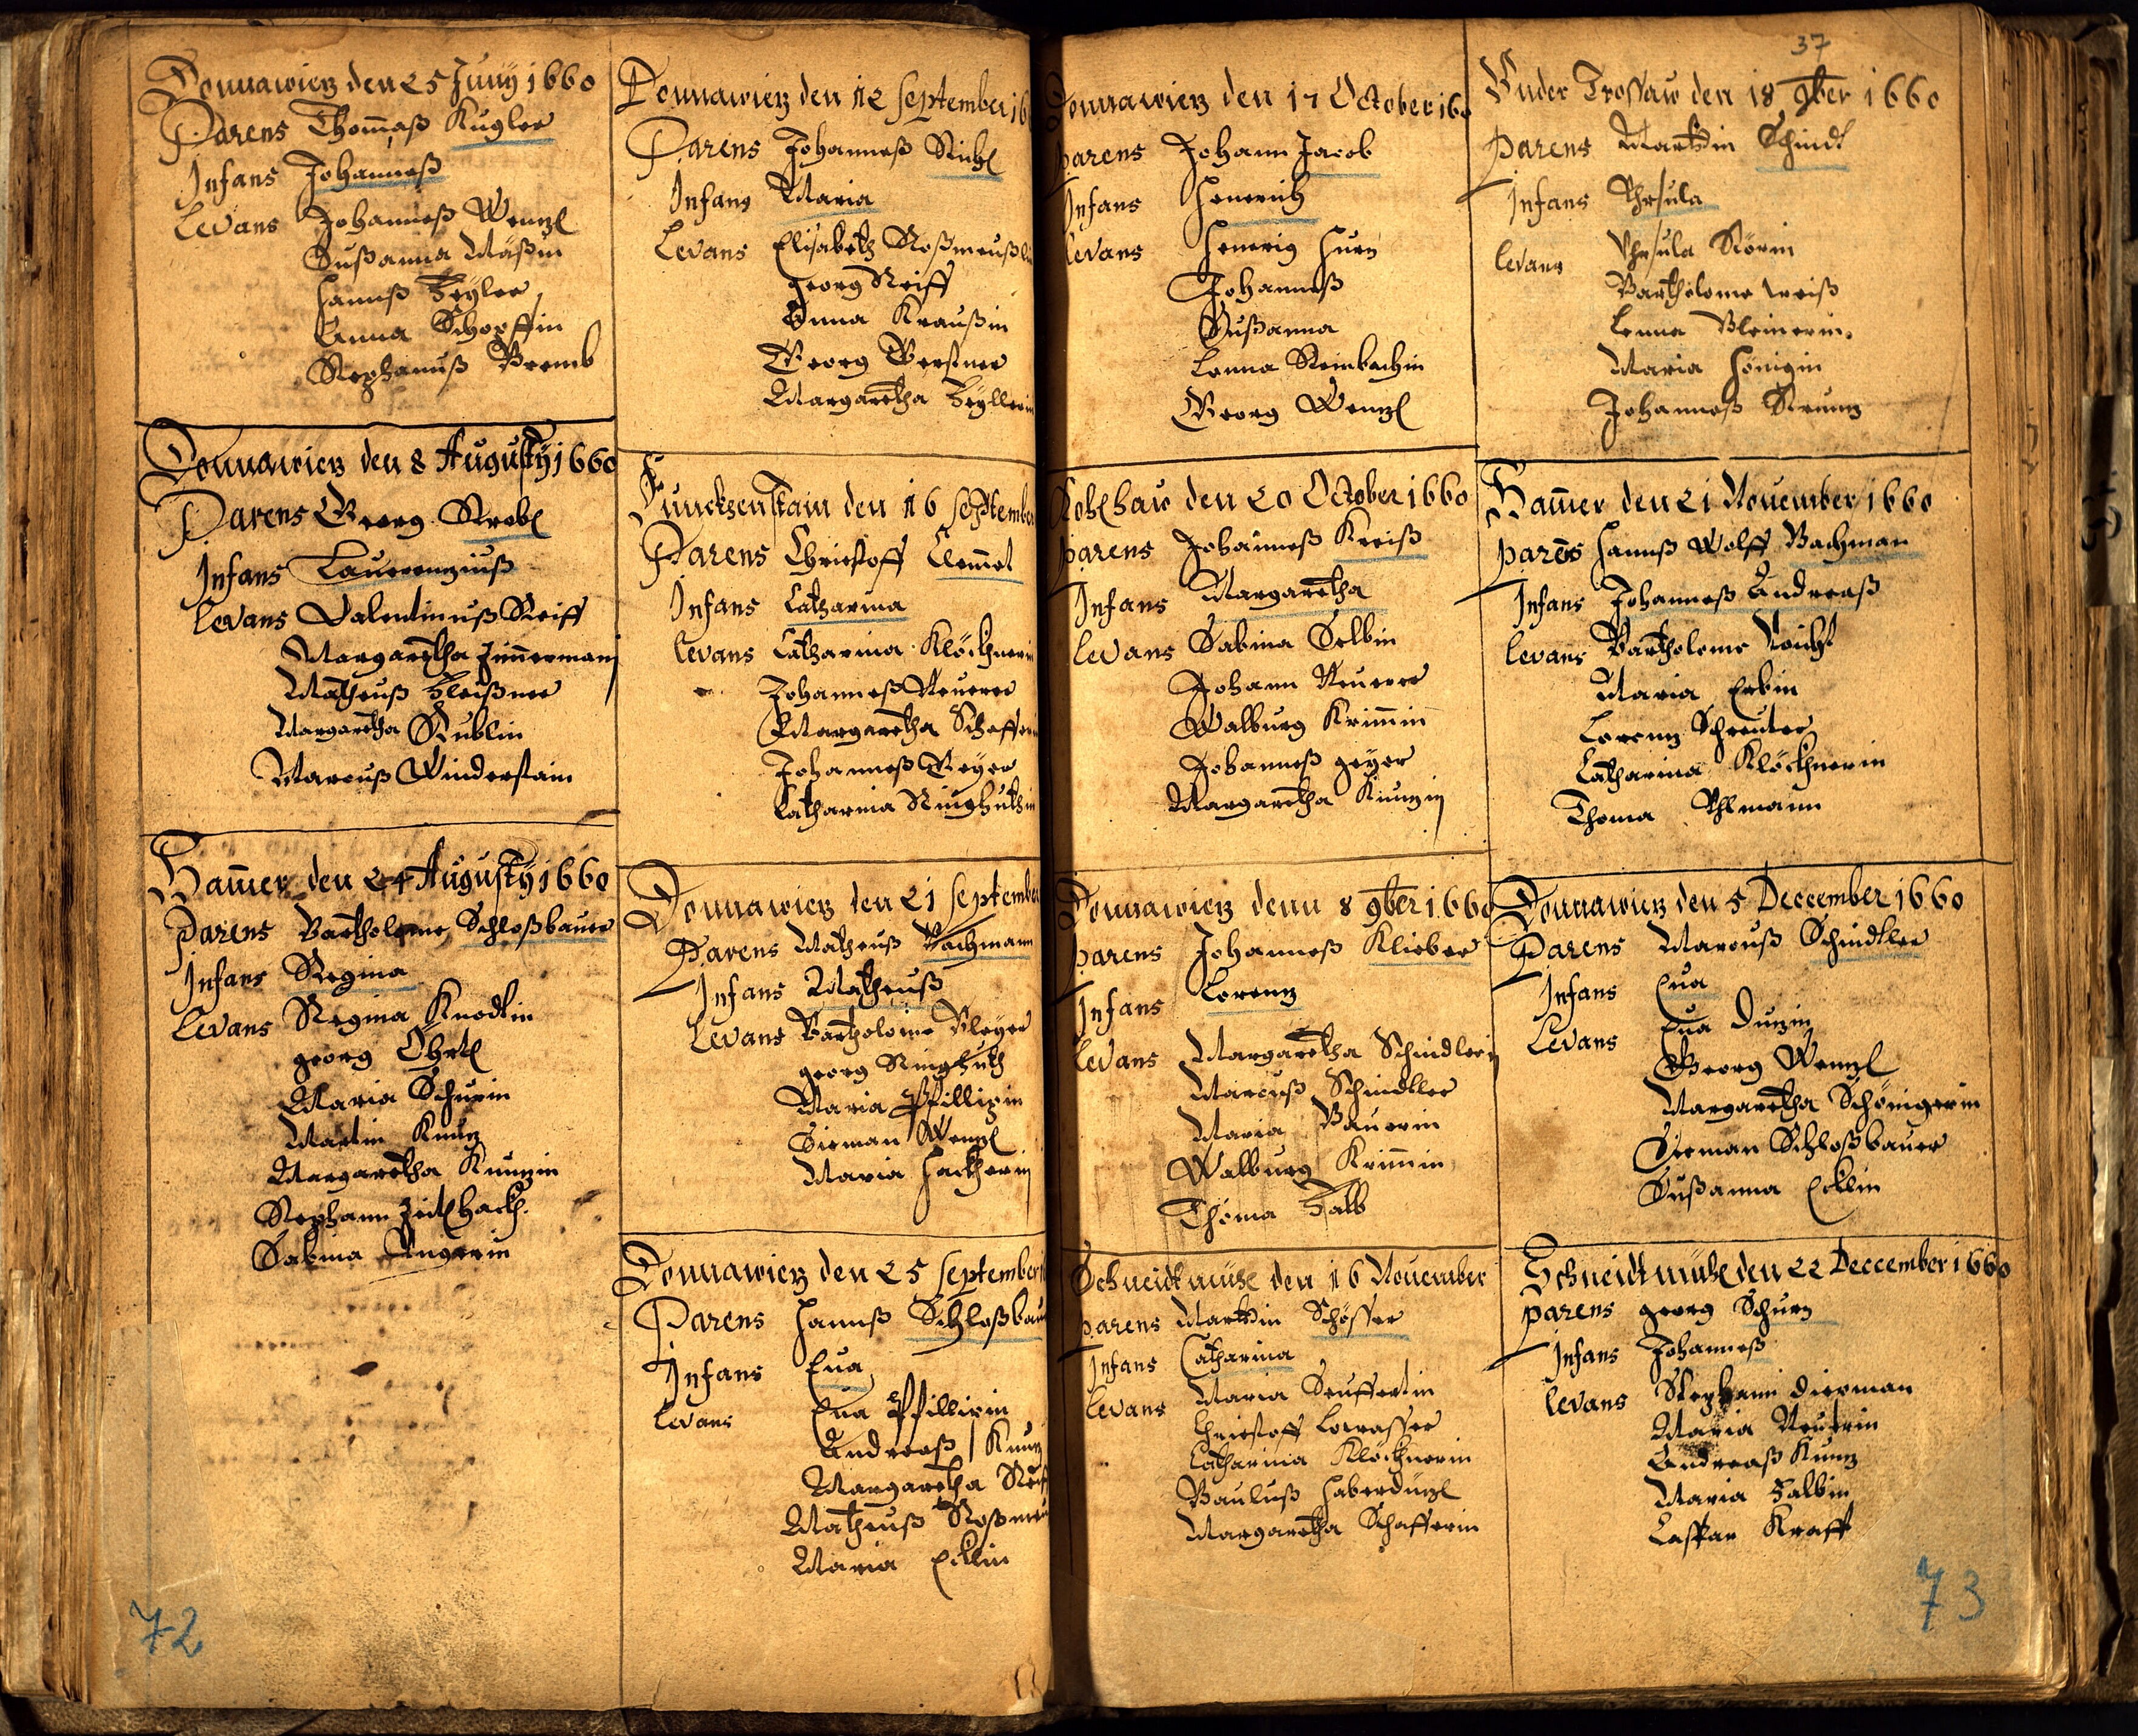 Donnawitz den 25 Juny 1660
Parens Thomaß Kugler
Infans Johanneß
Levans Johanneß Wentzl
Sußanna Mäßin
Hannß Beyler
Anna Schopffin
Stephanuß Bremb
Donnawitz den 8 Augusty 1660
Parens Georg Strobl
Infans Laurentziuß
Levans Valentinuß Reiff
Margaretha Zimmermanj
Matheuß Fleißner
Margaretha Kublin
Marcuß Winderstain
Hammer den 24 Augusty 1660
Parens Bartholome Schloßbauer
Infans Regina
Levans Regina Knodtin
georg Öhrtl
Maria Schurin
Martin Kuntz
Margaretha Kuntzin
Stephann Zeitlhack
Sabina Ungerin
72
Donnawitz den 12 September 16
Parens Johanneß
Infans Maria
Levans Elisabeth Roßmeußl
georg Reiff
Anna Kraußin
Georg Gerstner
Margaretha Beyllerin
Funckhenstain den 16 September
Parens Christoff Clemmet
Infans Catharina
Levans Catharina Klöckhnerin
Johanneß Neuerer
Margaretha Schafferin
Johanneß Geyer
Catharina Ringhuthin
Donnawitz den 21 September
Parens Matheuß Bachmann
Infans Matheuß
Levans Bartholome Bleyer
georg Ringhuth
Maria Pfillipin
Sieman Wentzl
Maria Hackherin
Donnawitz den 25 September
Parens Hannß Schloßbau
Infans Eua
Levans Eua Pfillipin
Andreaß Kuntz
Margaretha Reif
Matheuß Roßmeu
Maria Ecklin
37
Donnawitz den 17 October 160
parens Johann Jacob
Infans Henerich
Levans Henerig Hurtz
Johanneß
Sußanna
Lenna Steinbachin
Georg Wentzl
Kohlhaw den 20 October 1660
parens Johanneß Kreiß
Infans Margaretha
Levans Sabina Selbin
Johann Neuerer
Walburg Krimmin
Johanneß geyer
Margaretha Kuntzin
Donnawitz denn 8 9ber 1660
parens Johanneß Klieber
Infans Lorentz
Levans Margaretha Schindlerin
Marcuß Schindtler
Maria Bauerin
Walburg Krimmin
Thoma Falb
Schneidtmühl den 16 Nouember
parens Marthin Schösser
Infans Catharina
Levans Maria Seuffertin
Christoff Lorasser
Catharina Klöckhnerin
Pauluß Haberdürtzl
Margaretha Schafferin
Under Trossaw den 18 9ber 1660
parens Marthin Schindl
Infans Uhrsula
Levans Uhrsula Störin
Bartholome weiß
Lenna Kleinerin
Maria Hönigin
Johanneß Kruntz
Hammer den 21 Nouember 1660
parens Hannß Wolff Bachman
Infans Johanneß Andreaß
Levans Bartholome Knicht
Maria Erbin
Lorentz Schreuter
Catharina Klöckhnerin
Thoma Uhlmann
Donnawitz den 5 Deccember 1660
Parens Marcuß Schindtler
Infans Eua
Levans Eua Duntzin
Georg Wentzl
Margaretha Schönigerin
Sieman Schloßbauer
Sußanna Ecklin
Schneidtmühl den 22 Deccember 1660
parens georg Schurtz
Infans Johanneß
Levans Stephann dierman
Maria Neuberin
Andreaß Kuntz
Maria Falbin
Caspar Krafft
73